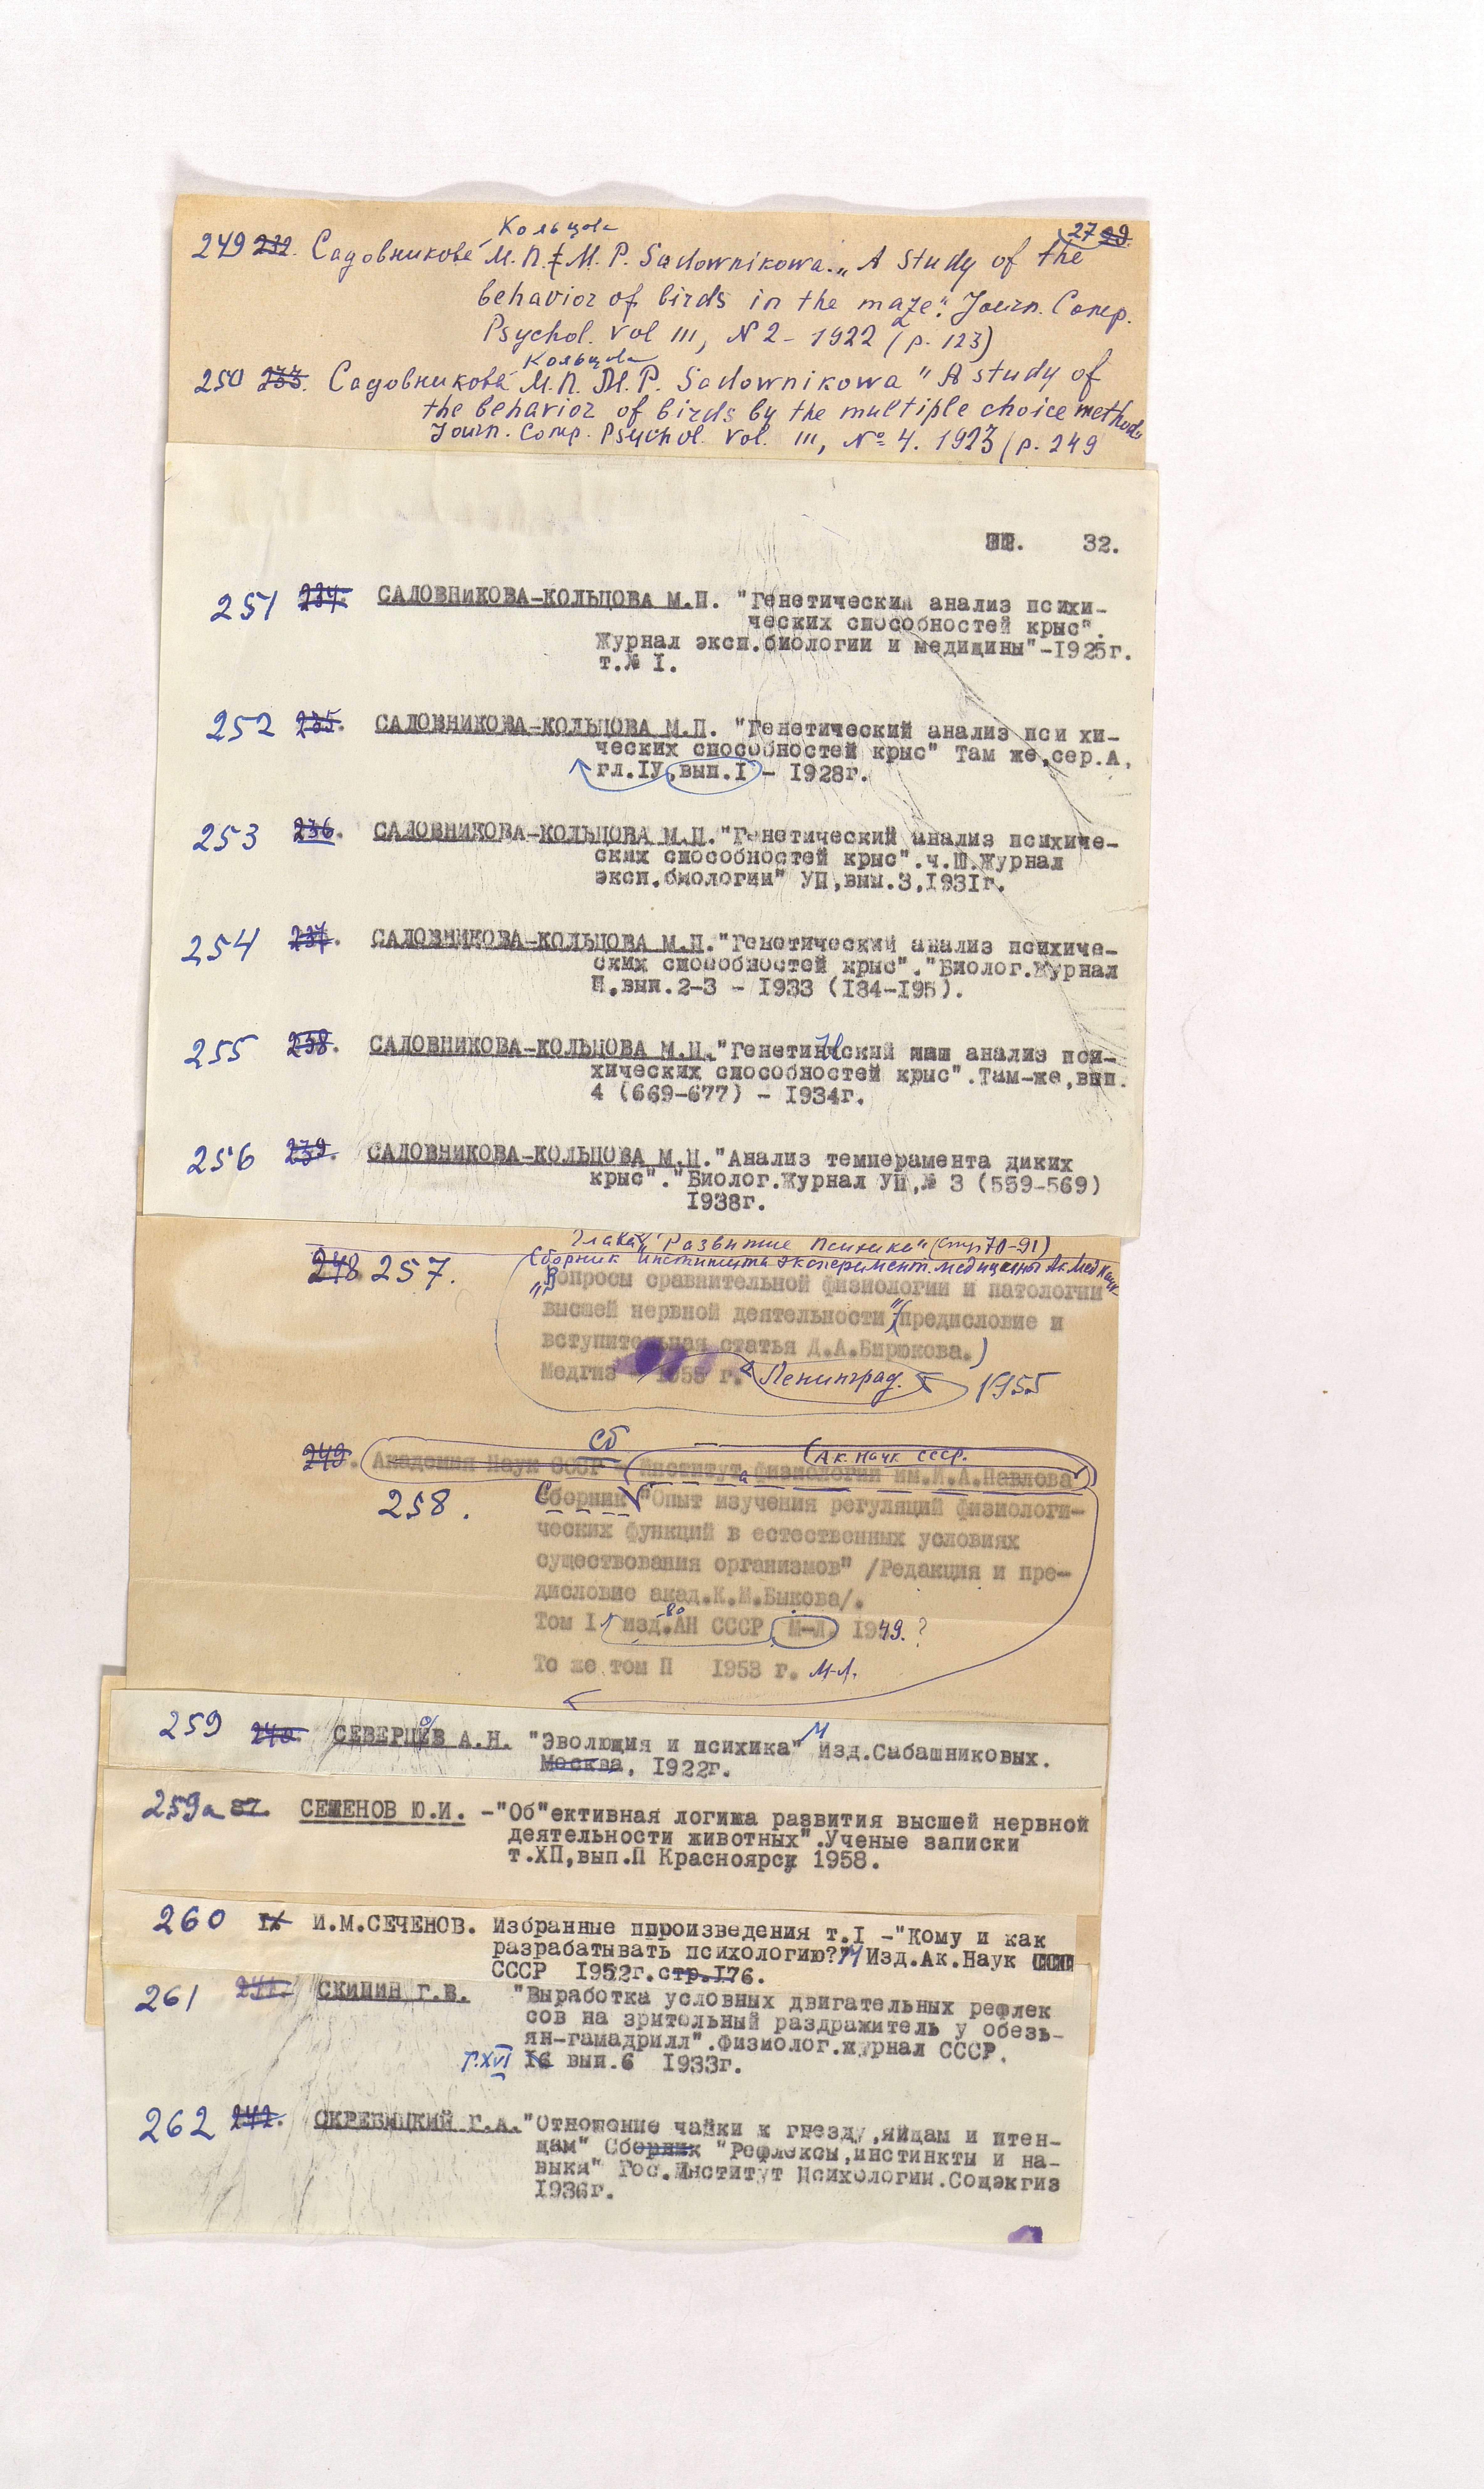 Кольцова
27 99.
249 232. Садовникова М.П. М. Р. Sadownikowa. „A study of the
behavior of birds in the maze". Journ. Comp.
Psychol. vol III, N 2 - 1922 (p. 123)
Кольцова
250 233. Садовникова М.П. M. P. Sadownikowa "A study of
the behavior of birds by the multiple choice method"
Journ. Comp. Psychol. Vol. III, № 4. 1923 (p. 249
32.
251 234. САДОВНИКОВА-КОЛЬЦОВА М.П. "Генетический анализ психи-
ческих способностей крыс".
Журнал эксп.биологии и медицины"-1925г.
т.№ I.
252 235. САДОВНИКОВА-КОЛЬЦОВА М.П. "Генетический анализ пси хи-
ческих способностей крыс" Там же,сер.А,
гл.IУ,вып.I - 1928г.
253 236. САДОВНИКОВА-КОЛЬЦОВА М.П."Генетический анализ психиче-
ских способностей крыс".ч.Ш.Журнал
эксп.биологии" УП,вып.3,1931г.
254 237. САДОВНИКОВА-КОЛЬЦОВА М.П."Генетический анализ психиче-
ских способностей крыс"."Биолог.Журнал
П,вып.2-3 - 1933 (184-195).
255 238. САДОВНИКОВА-КОЛЬЦОВА М.П."Генетический анализ пси-
хических способностей крыс".Там-же,вып.
4 (669-677) - 1934г.
256 239. САДОВНИКОВА-КОЛЬЦОВА М.П."Анализ темперамента диких
крыс"."Биолог.Журнал УП,№ 3 (559-569)
1938г.
Глава V "Развитие психики" (стр 70-91)
Сборник института эксперимент. медицины Ак. Мед Наук
248 257. „Вопросы сравнительной физиологии и патологии
высшей нервной деятельности" (предисловие и
вступительная статья Д.А.Бирюкова.)
Медгиз 1955 г. Ленинград. 1955
Сб Ак. Наук СССР.
249. Академия Наук СССР - Института физиологии им.И.А.Павлова
258. Сборник "Опыт изучения регуляций физиологи-
ческих функций в естественных условиях
существования организмов" /Редакция и пре-
дисловие акад.К.М.Быкова/.
Том I изд-во АН СССР, М-Л. 1949. ?
То же том П 1953 г. М-Л.
259 240. СЕВЕРЦОВ А.Н. "Эволюция и психика" М Изд.Сабашниковых.
Москва, 1922г.
259а 87. СЕМЕНОВ Ю.И. -"Об"ективная логика развития высшей нервной
деятельности животных".Ученые записки
т.ХП,вып.П Красноярск, 1958.
260 IX И.М.СЕЧЕНОВ. Избранные ппроизведения т.I -"Кому и как
разрабатывать психологию?" М Изд.Ак.Наук
СССР 1952г.стр.176.
261 241. СКИПИН Г.В. "Выработка условных двигательных рефлек
сов на зрительный раздражитель у обезь-
ян-гамадрилл".Физиолог.журнал СССР.
т.XVI 16 вып.6 1933г.
262 242. СКРЕБИЦКИЙ Г.А."Отношение чайки к гнезду,яйцам и птен-
цам" Сборник "Рефлексы,инстинкты и на-
выки" Гос.Институт Психологии.Соцэкгиз
1936г.